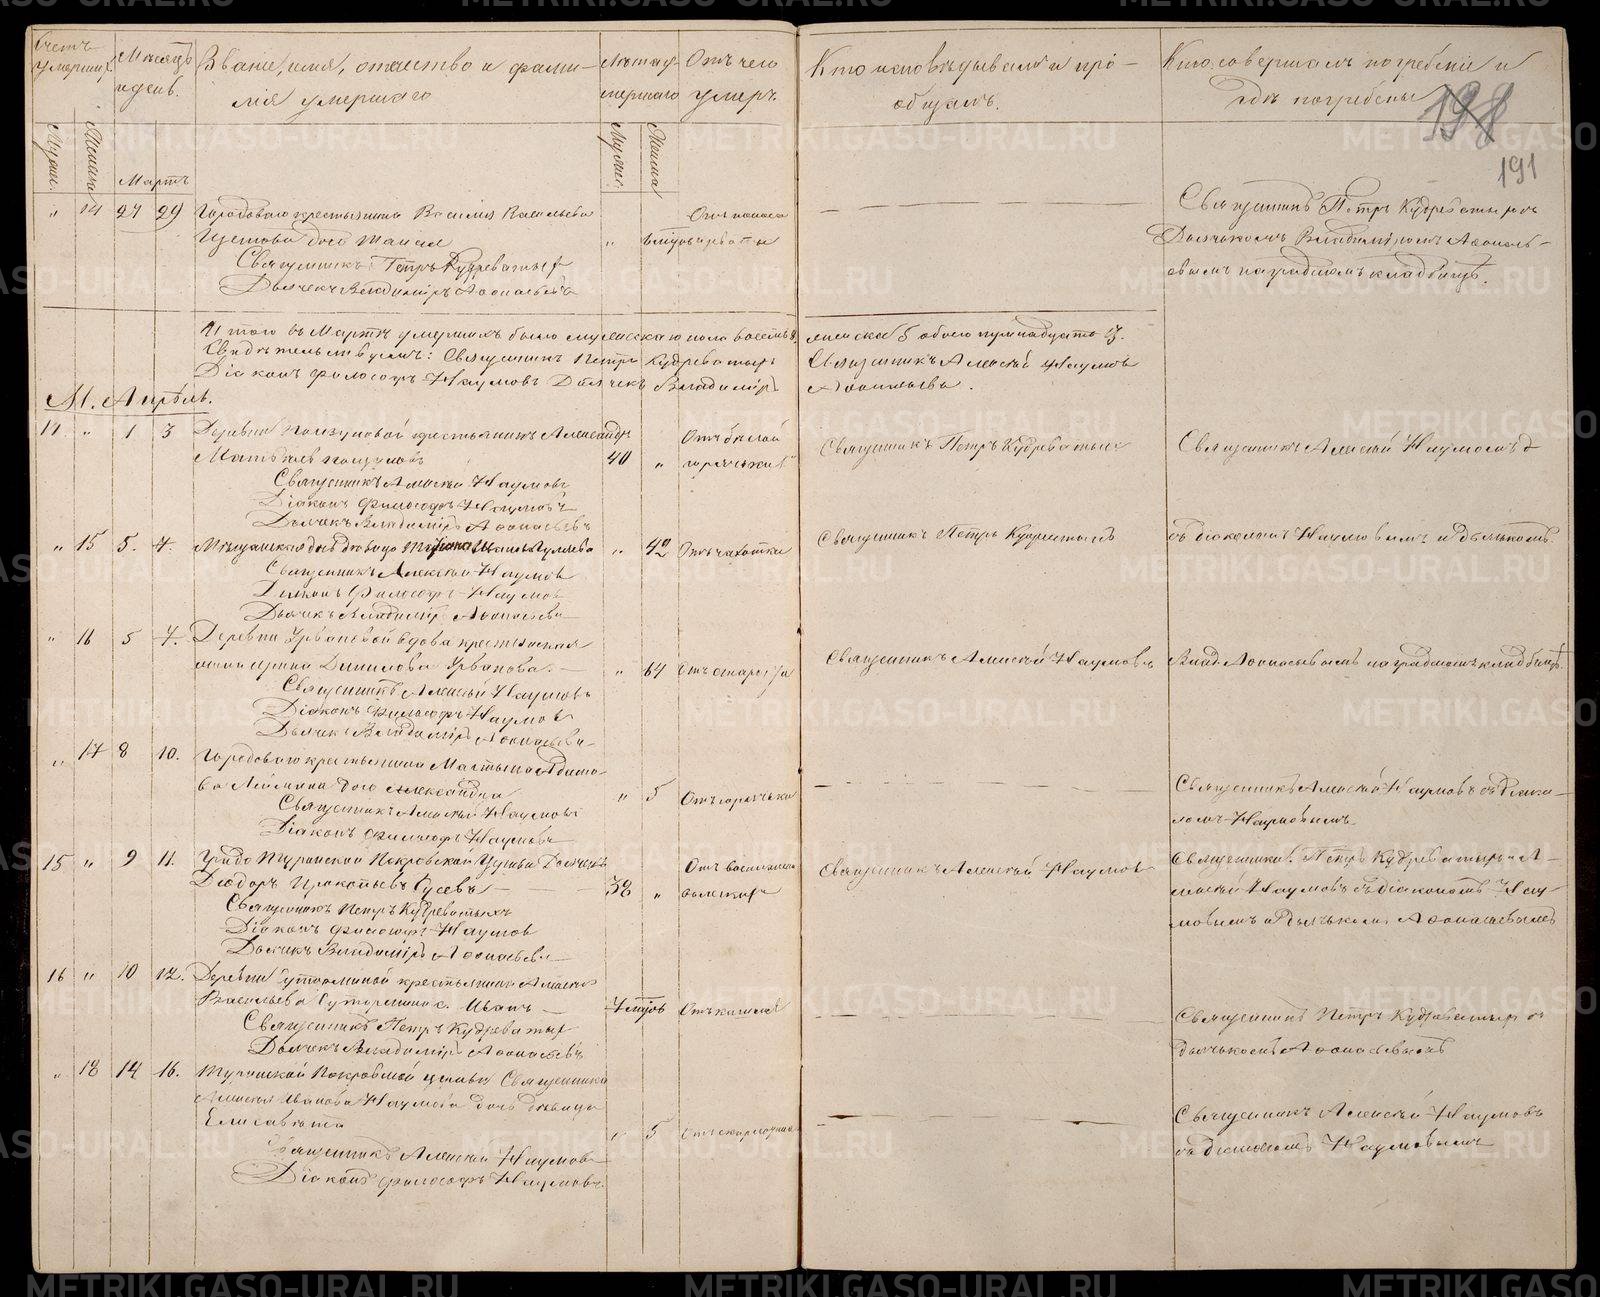 Счетъ умершихъ
Мѣсяцъ и день.
Званіе, имя, отчество и фами-
лія умершаго
Лѣта умершаго
Отъ чего
умеръ.
Кто исповѣдывалъ и прі-
общалъ.
Кто совершалъ погребеніе и
гдѣ погребены
198
191
Мужск.
Женска
Мартъ
Мужск.
Женска
" 14 27 29 Городоваго крестьянина Василія Васильева
дочь
" Отъ поноса
Священникъ Петръ Кудреватыхъ
Дьячекъ Владиміръ Аѳонасьевъ
Священникъ Петръ Кудреватыхъ съ
Дьячькомъ Владиміромъ Аѳонась-
евымъ на градскомъ кладбищѣ.
Итого въ Мартѣ умершихъ было мужескаго пола восемь 8, женска 5 обоего тринадцать 13.
Свидѣтельствуемъ: Священникъ Петръ Кудреватыхъ Священникъ Алексѣй Наумовъ
Діаконъ Философъ Наумовъ Дьячекъ Владиміръ Аѳонасьевъ.
М. Апрѣль.
14. " 1 3 Деревни крестьянинъ Александръ
40 " Отъ бѣлой
горячьки
Священникъ Алексѣй Наумовъ
Діаконъ Философъ Наумовъ
Дьячекъ Владиміръ Аѳонасьевъ
Священникъ Петръ Кудреватыхъ
Священникъ Алексѣй Наумовъ съ
" 15 5. 7. Мѣщанская дочь дѣвица
" 40 Отъ чахотки
Священникъ Алексѣй Наумовъ
Діаконъ Философъ Наумовъ
Дьячекъ Владиміръ Аѳонасьевъ
Священникъ Петръ Кудреватыхъ
съ діакономъ Наумовымъ и дьячькомъ
" 16 5 7. Деревни Урвановой вдова крестьянская
Данилова Урванова.
" 64 Отъ старости
Священникъ Алексѣй Наумовъ
Діаконъ Философъ Наумовъ
Дьячекъ Владиміръ Аѳонасьевъ
Священникъ Алексѣй Наумовъ
Влад. Аѳонасьевымъ на градскомъ кладбищѣ.
" 17 8 10. Городоваго крестьянина Мартына
дочь Александра
" 5 Отъ горячьки
Священникъ Алексѣй Наумовъ
Діаконъ Философъ Наумовъ
Священникъ Алексѣй Наумовъ съ Діако-
номъ Наумовымъ
15 " 9 11. Градо Туринской Покровской Церкви Дьячекъ
Діодоръ Прокопьевъ Гусевъ
38 " Отъ воспаленія
Священникъ Петръ Кудреватыхъ
Діаконъ Философъ Наумовъ
Дьячекъ Владиміръ Аѳонасьевъ
Священникъ Алексѣй Наумовъ
Священники: Петръ Кудреватыхъ и А-
лексѣй Наумовъ съ Діакономъ Нау-
мовымъ и Дьячькомъ Аѳонасьевымъ
16 " 10 12. Деревни крестьянина Алексѣя
Васильева с. Иванъ
7 Отъ кашля
Священникъ Петръ Кудреватыхъ
Дьячекъ Владиміръ Аѳонасьевъ
Священникъ Петръ Кудреватыхъ съ
дьячькомъ Аѳонасьевымъ
" 18 14 16. Туринской Покровской церкви Священника
Алексѣя Иванова Наумова дочь дѣвица
Елисавета
" 5 Отъ скарлатины
Священникъ Алексѣй Наумовъ
Діаконъ Философъ Наумовъ
Священникъ Алексѣй Наумовъ
съ діакономъ Наумовымъ
METRIKI.GASO-URAL.RU